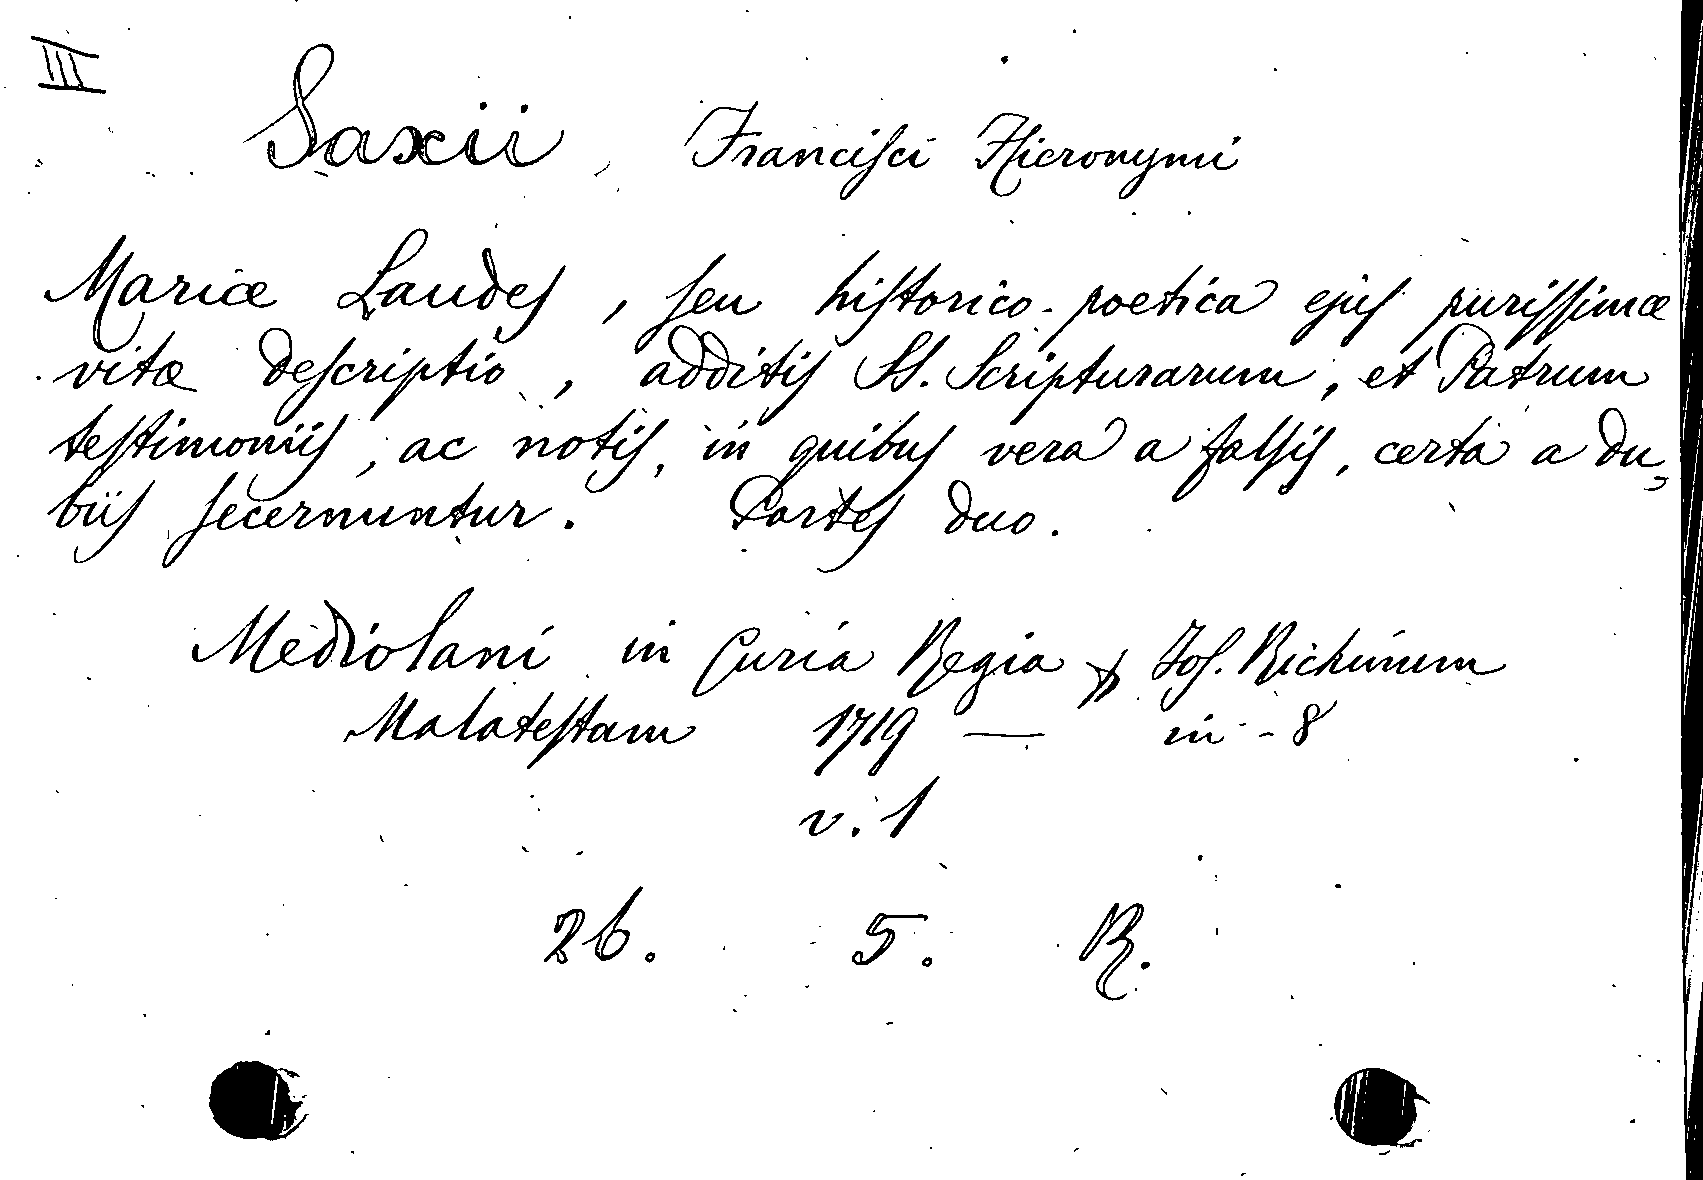 III
Saxii, Francisci Hieronymi
Mariæ Laudes, seu historico-poetica ejus purissimæ
vitæ descriptio, additis SS. Scripturarum, et Patrum
testimoniis, ac notis, in quibus vera a falsis, certa a du-
biis secernuntur. Partes duo.
Mediolani in Curia Regia Jos. Richinum
Malatestam 1719 — in-8
v. 1
26. 5. R.